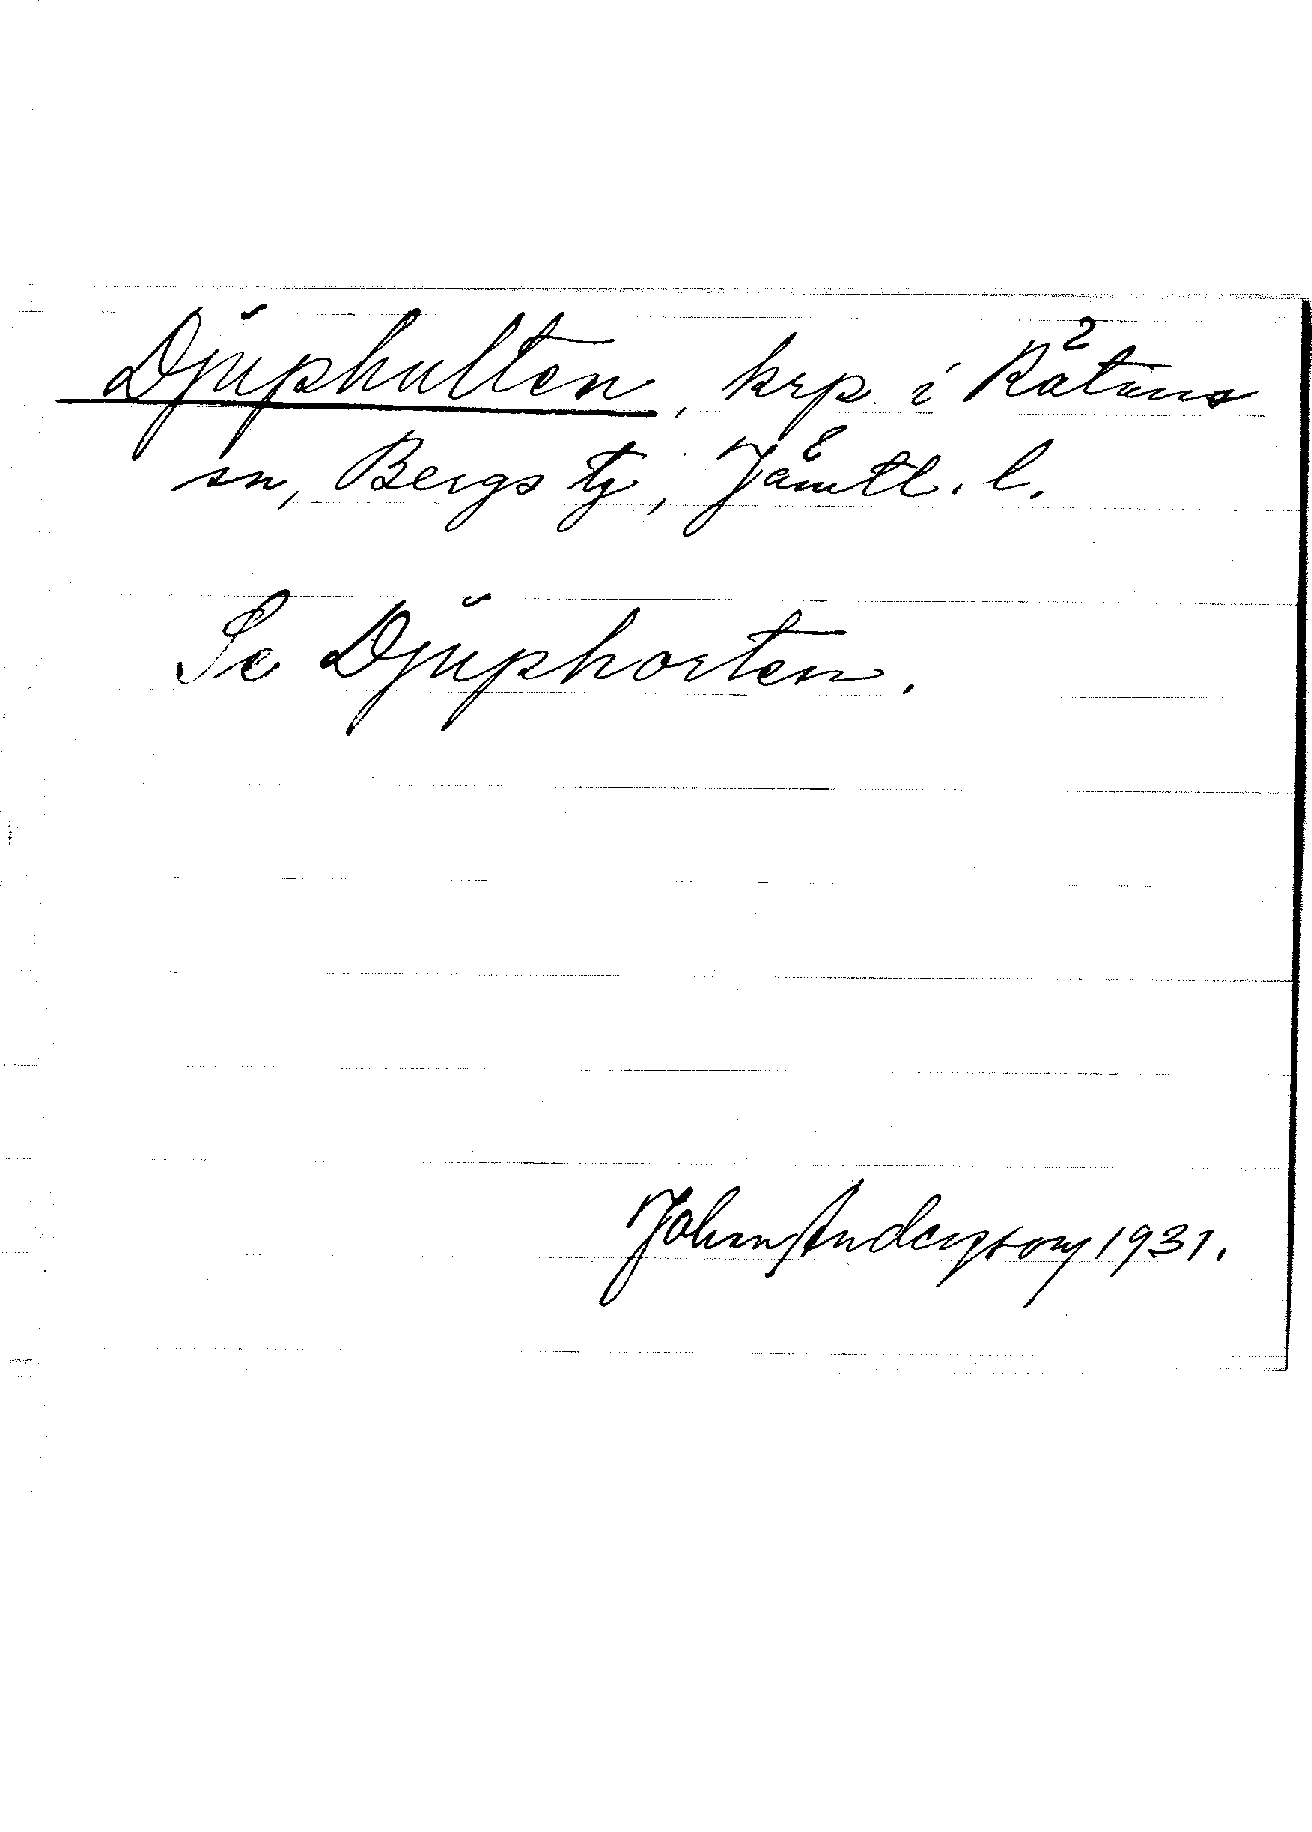 Djuphulten, krp i Rätans
sn, Bergs tg, Jämtl. l.
Se Djuphorten.
John Andersson 1931.